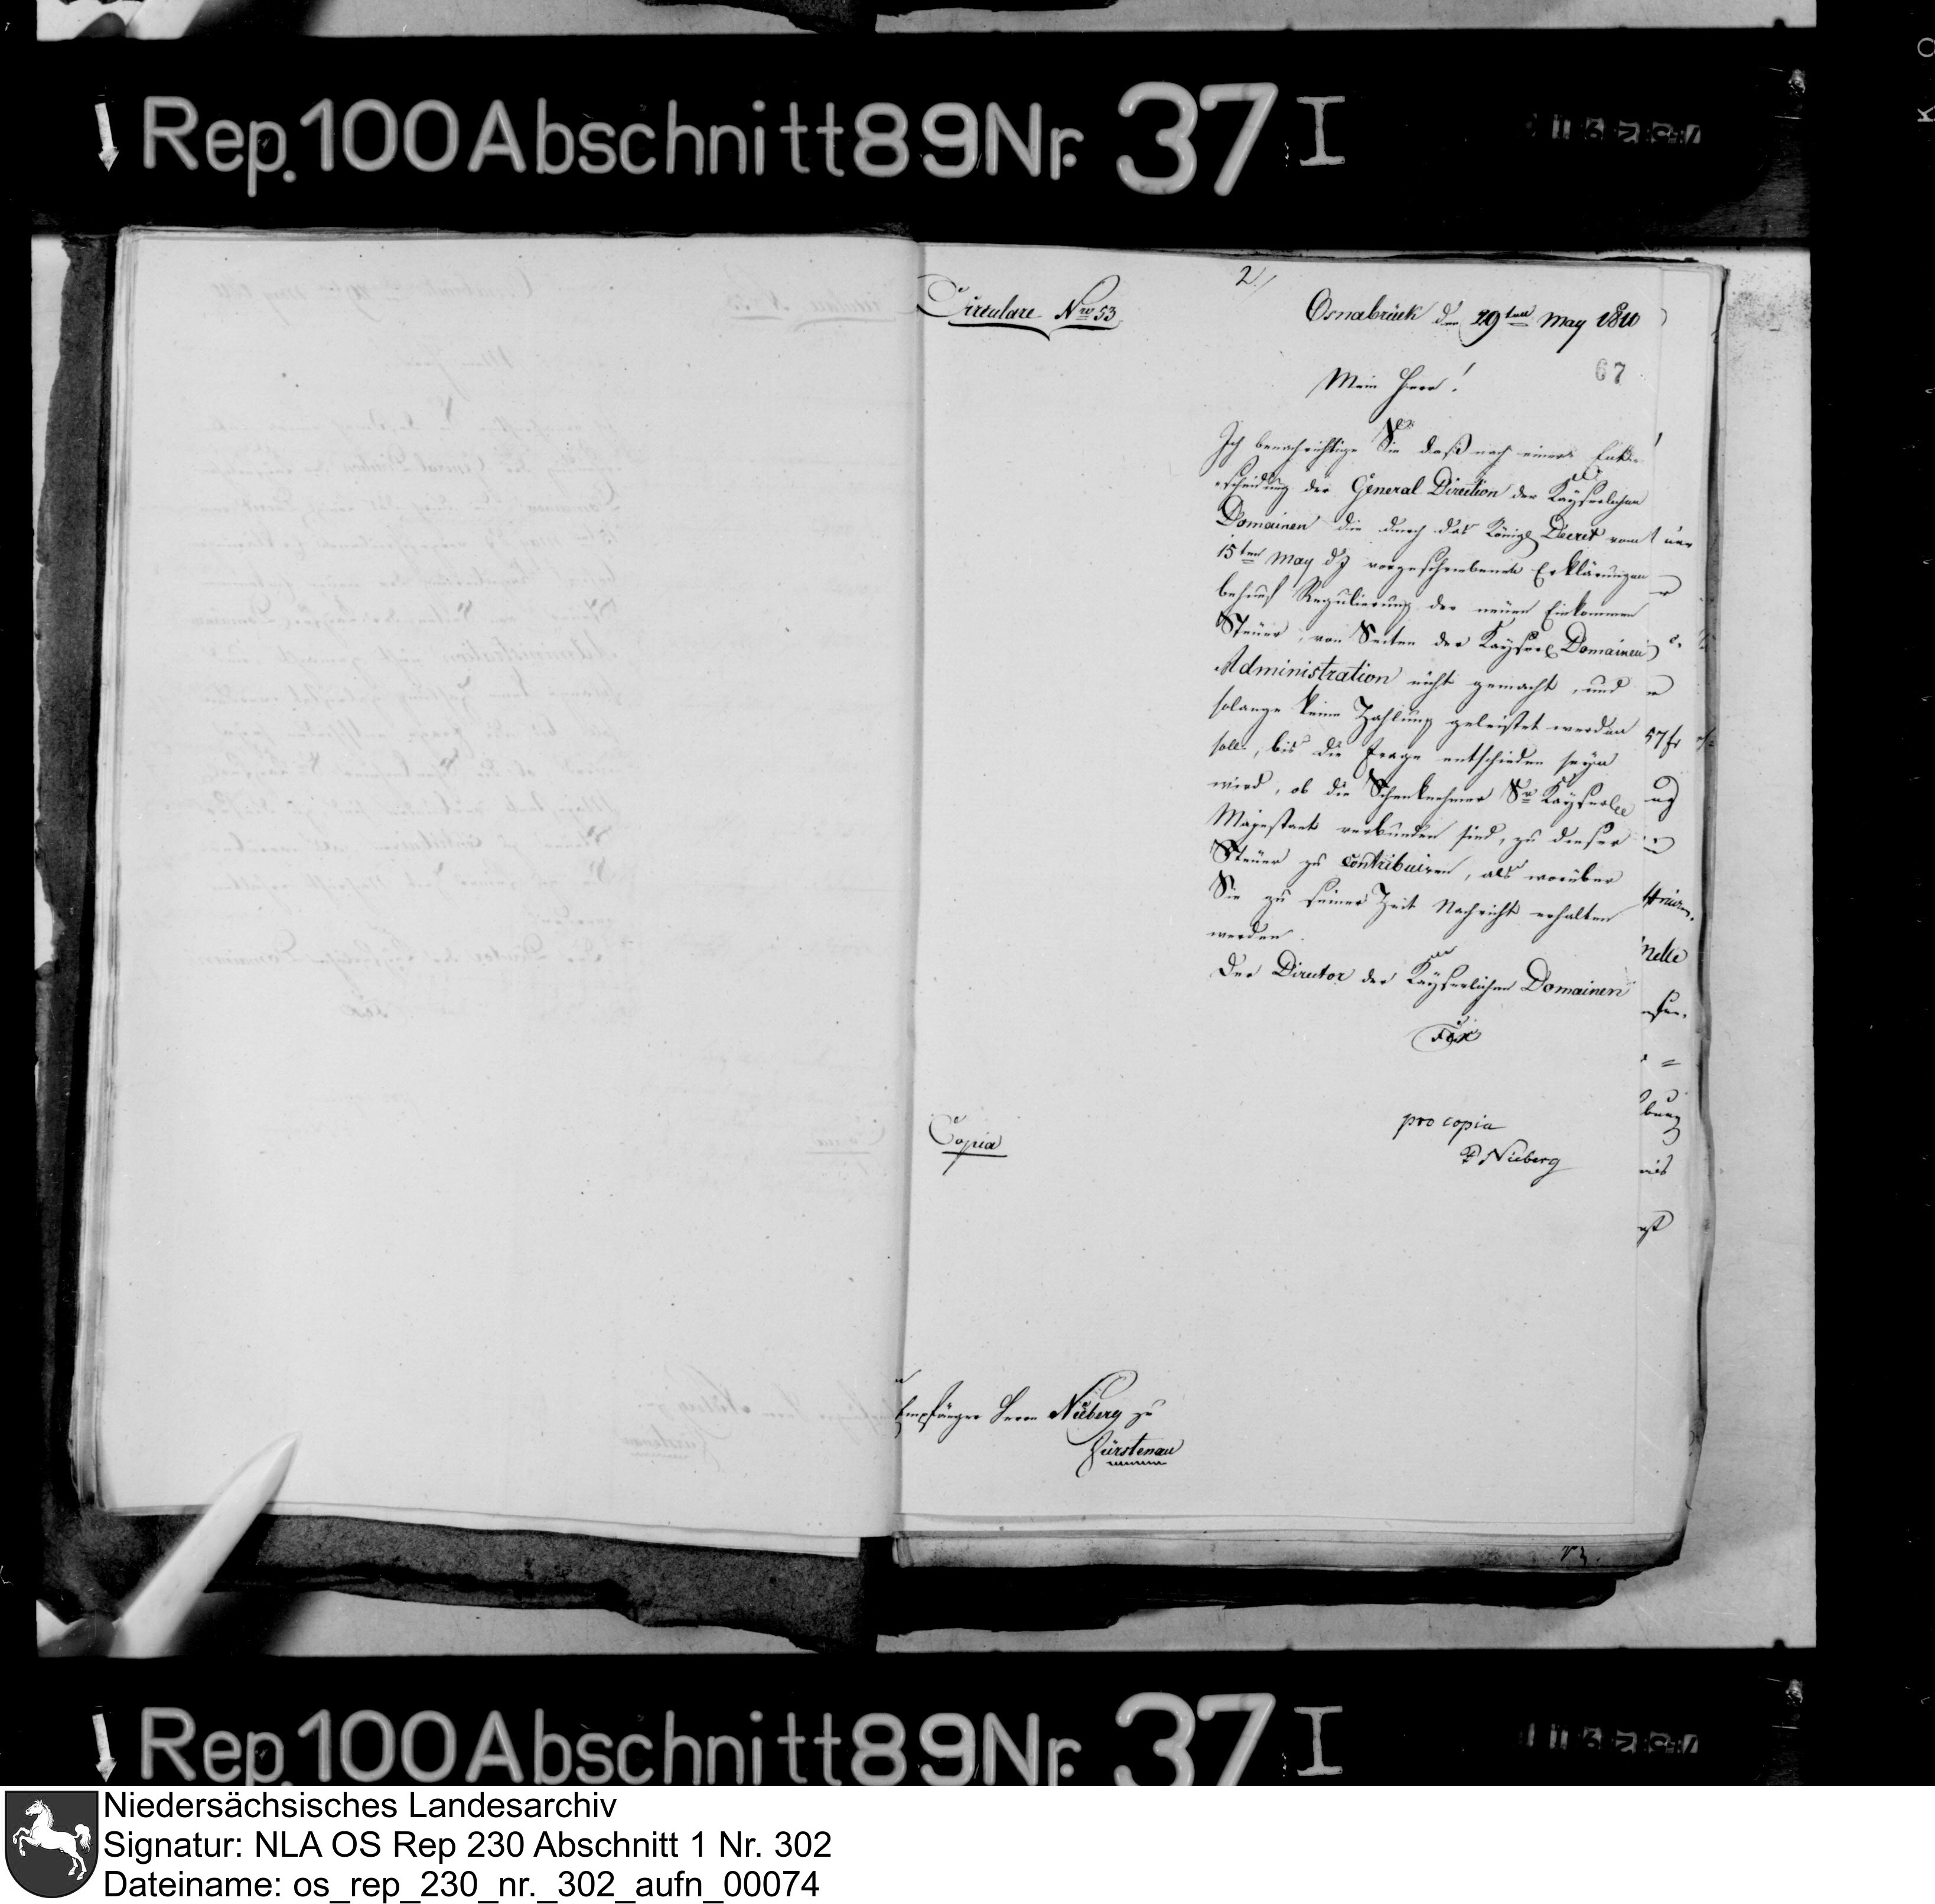 Rep. 100 Abschnitt 89 Nr. 37 I
2./
Circulare Nro 53
Osnabrück den 29ten May 1810
67
Mein Herr!
Ich benachrichtige Sie daß nach einer Ent-
scheidung der General Direction der Kayserlichen
Domainen die durch das Königl Decret vom
15ten May dJ vorgeschriebenen Erklärungen
behuef Regulierung der neuen Einkommen
Steuer, von Seiten der Kayserl Domainen
Administration nicht gemacht, und
solange keine Zahlung geleistet werden
soll, bis die Frage entschieden seyn
wird, ob die Schenknehmer Sr Kayserl
Majestaet verbunden sind, zu dieser
Steuer zu contribuiren, als worüber
Sie zu seiner Zeit Nachricht erhalten
werden
Der Director der Kayserlichen Domainen
57 fr
Copia
pro copia
Nieberg
Empfänger Herrn Nieberg zu
Fürstenau
Rep. 100 Abschnitt 89 Nr. 37 I
Niedersächsisches Landesarchiv
Signatur: NLA OS Rep 230 Abschnitt 1 Nr. 302
Dateiname: os_rep_230_nr._302_aufn_00074